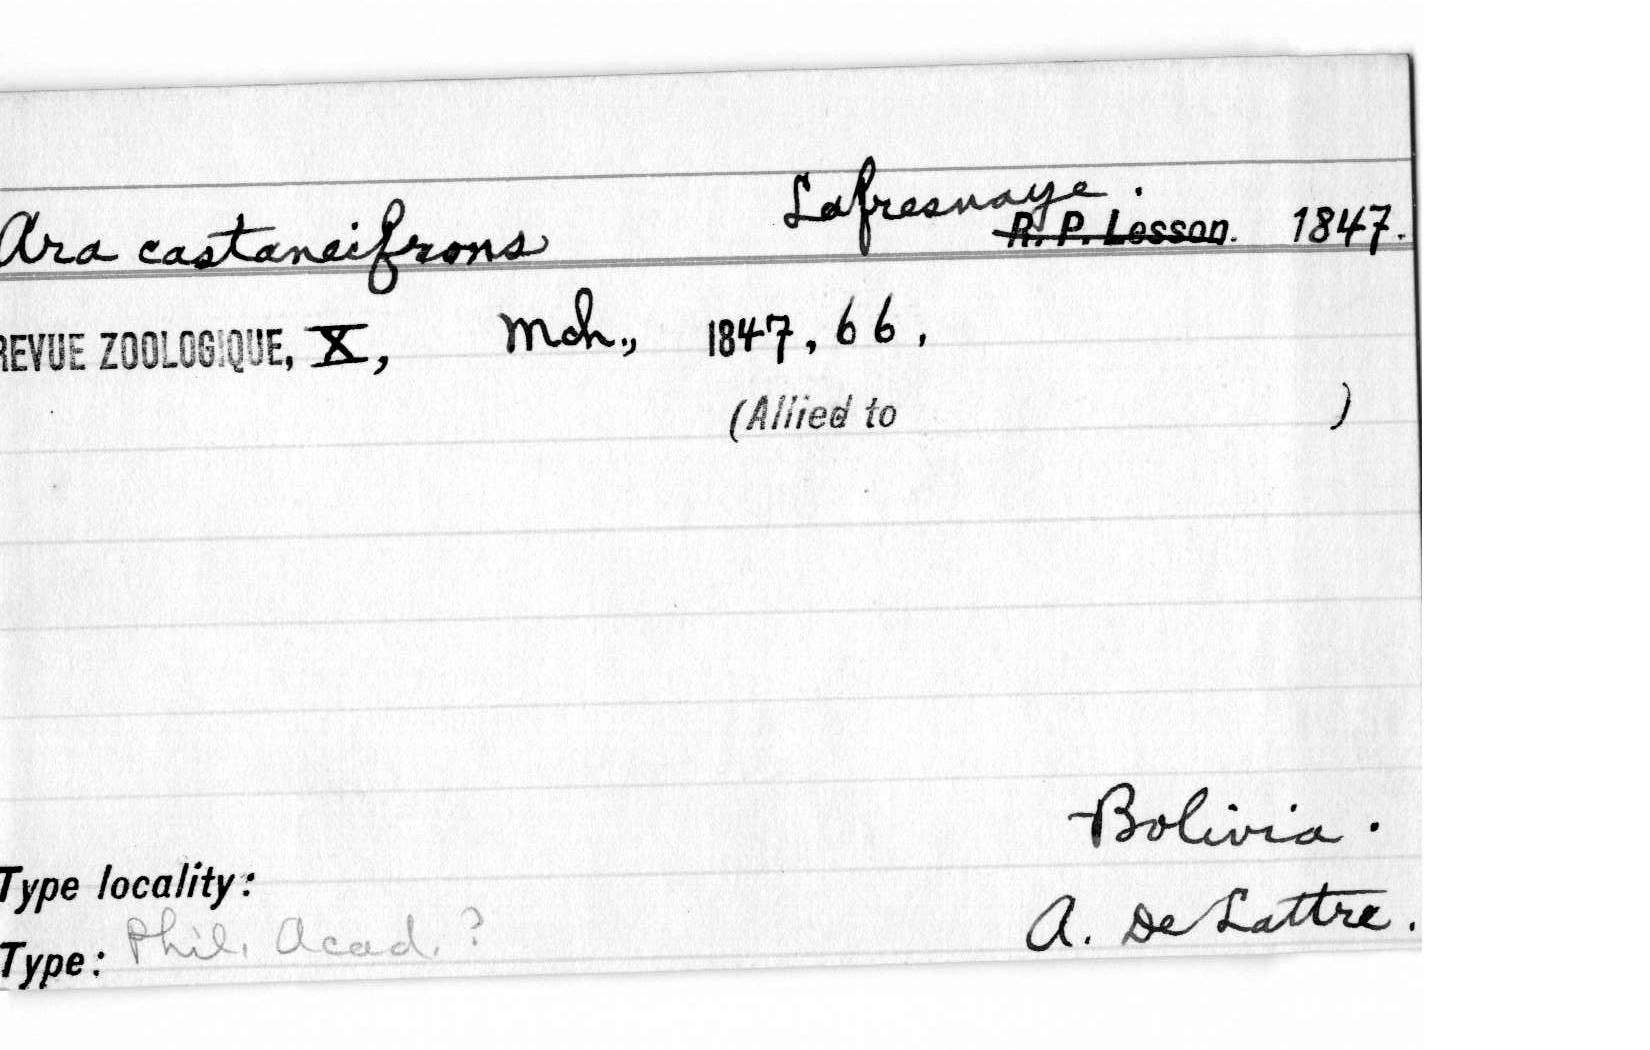 Ara castaneifrons Lafresnaye. R. P. Lesson. 1847.
REVUE ZOOLOGIQUE, X, Mch., 1847, 66,
(Allied to )
Bolivia.
Type locality:
A. De Lattre.
Type: Phil. Acad. ?